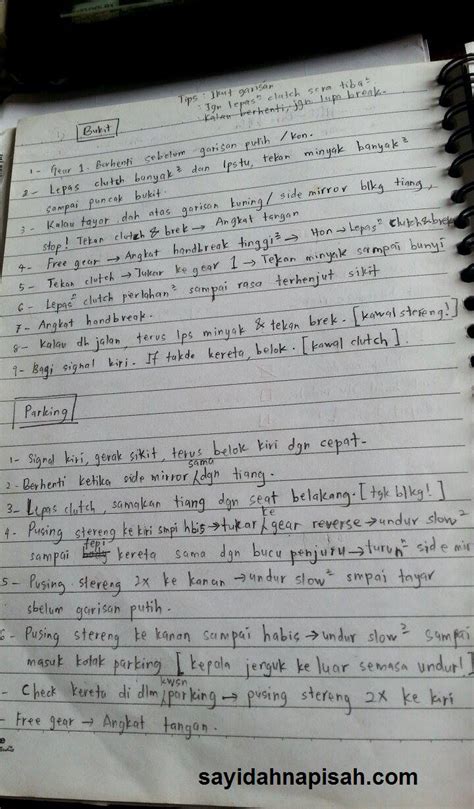 Tips : Ikut garisan
Jgn lepas² clutch scra tiba²
kalau berhenti, jgn lupa break.
Bukit
1- Gear 1. Berhenti sebelum garisan putih /kon.
2- Lepas clutch banyak² dan lpstu, tekan minyak banyak²
sampai puncak bukit.
3- Kalau tayar dah atas garisan kuning/ side mirror blkg tiang,
stop! Tekan clutch & brek → Angkat tangan
4- Free gear → Angkat handbreak tinggi² → Hon → Lepas² clutch & brek
5- Tekan clutch → Tukar ke gear 1 → Tekan minyak sampai bunyi
6- Lepas² clutch perlahan² sampai rasa terhenjut sikit
7- Angkat handbreak.
8- Kalau dh jalan, terus lps minyak & tekan brek. [kawal stereng!]
9- Bagi signal kiri. If takde kereta, belok. [kawal clutch].
Parking
1- Signal kiri, gerak sikit, terus belok kiri dgn cepat-
2- Berhenti ketika side mirror sama dgn tiang.
3- Lepas clutch, samakan tiang dgn seat belakang. [tgk blkg!]
4- Pusing stereng ke kiri smpi hbis → tukar ke gear reverse → undur slow²
sampai tepi kereta sama dgn bucu penjuru → turun² side mir
5- Pusing stereng 2x ke kanan → undur slow² smpai tayar
sbelum garisan putih.
6- Pusing stereng ke kanan sampai habis → undur slow² sampai
masuk kotak parking [kepala jenguk ke luar semasa undur!]
- Check kereta di dlm kwsn parking → pusing stereng 2x ke kiri
- Free gear → Angkat tangan.
sayidahnapisah.com